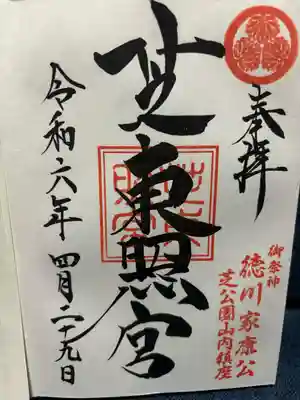 奉拝
御祭神
徳川家康公
芝公園山内鎮座
芝東照宮
令和六年 四月二十九日